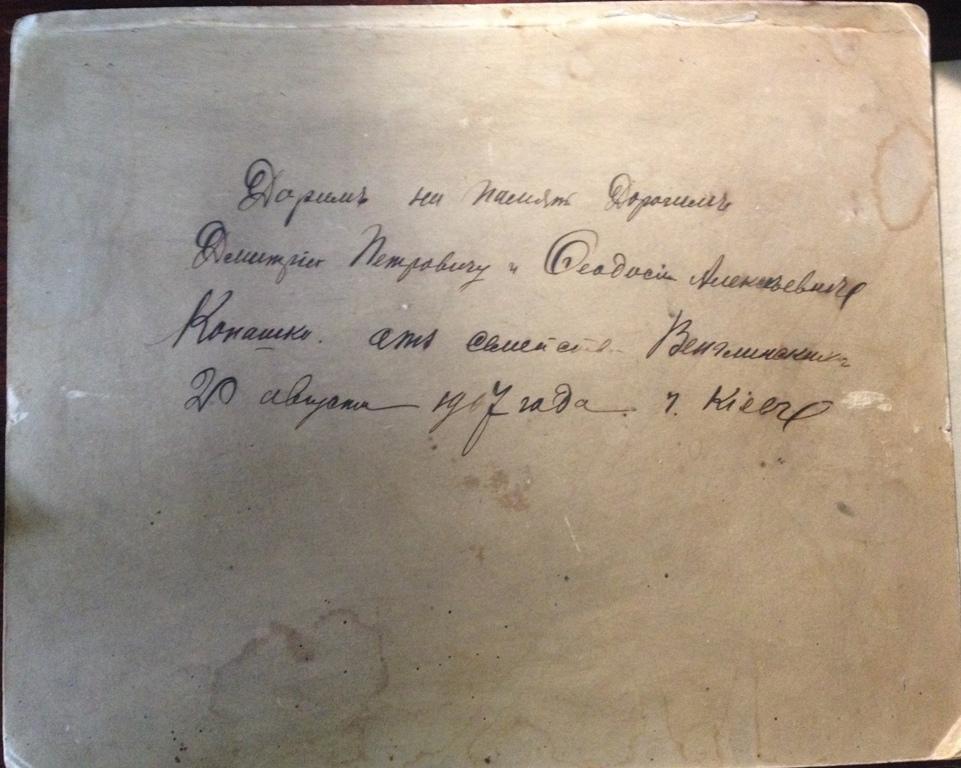 Даримъ на память Дорогимъ
Дмитрію Петровичу и Ѳеодосіи Алексѣевнѣ
Копашко. отъ семейства
20 августа 1907 года. г. Кіевъ